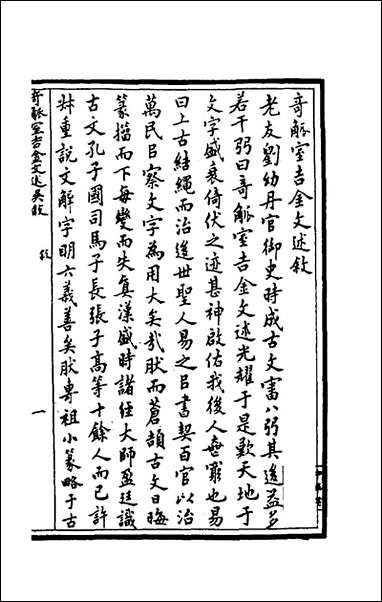 奇觚室吉金文述敘
老友劉幼丹官御史時成古文審八弓其後益多
若干弓曰奇觚室吉金文述光耀于是歎天地于
文字盛衰倚伏之迹甚神啟佑我後人無窮也易
曰上古結繩而治後世聖人易之㠯書契百官以治
萬民㠯察文字為用大矣哉肰而蒼頡古文日晦
篆描而下每變而失真漢盛時諸經大師盈廷識
古文孔子國司馬子長張子高等十餘人而已許
叔重說文解字明六義善矣肰專祖小篆略于古
奇觚室吉金文述吳敘
敘
一